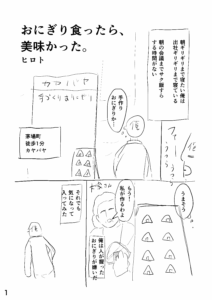 おにぎり食ったら、
美味かった。
ヒロト
朝ギリギリまで寝たい俺は
出社ギリギリまで寝ている
朝の会議までサク飯すら
する時間がない
カヤバヤ
手作り
おにぎりか…
茅場町
徒歩1分
カヤバヤ
うまそう
もう!
私が作るわよ
俺は人が握った
おにぎりが嫌いだ
それでも
気になって
入ってみた
1